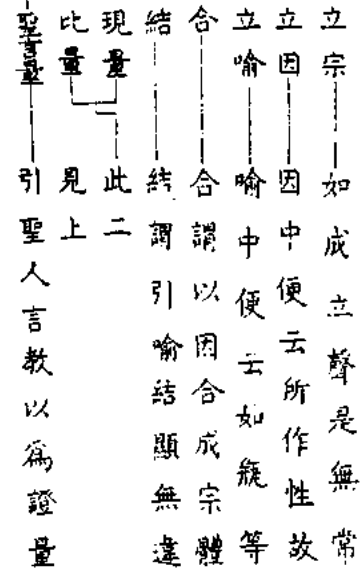 立宗——如成立聲是無常
立因——因中便云所作性故
立喻——喻中便云如瓶等
合——合謂以因合成宗體
結——結謂引喻結顯無違
現量 此二
比量 見上
聖言量——引聖人言教以為證量